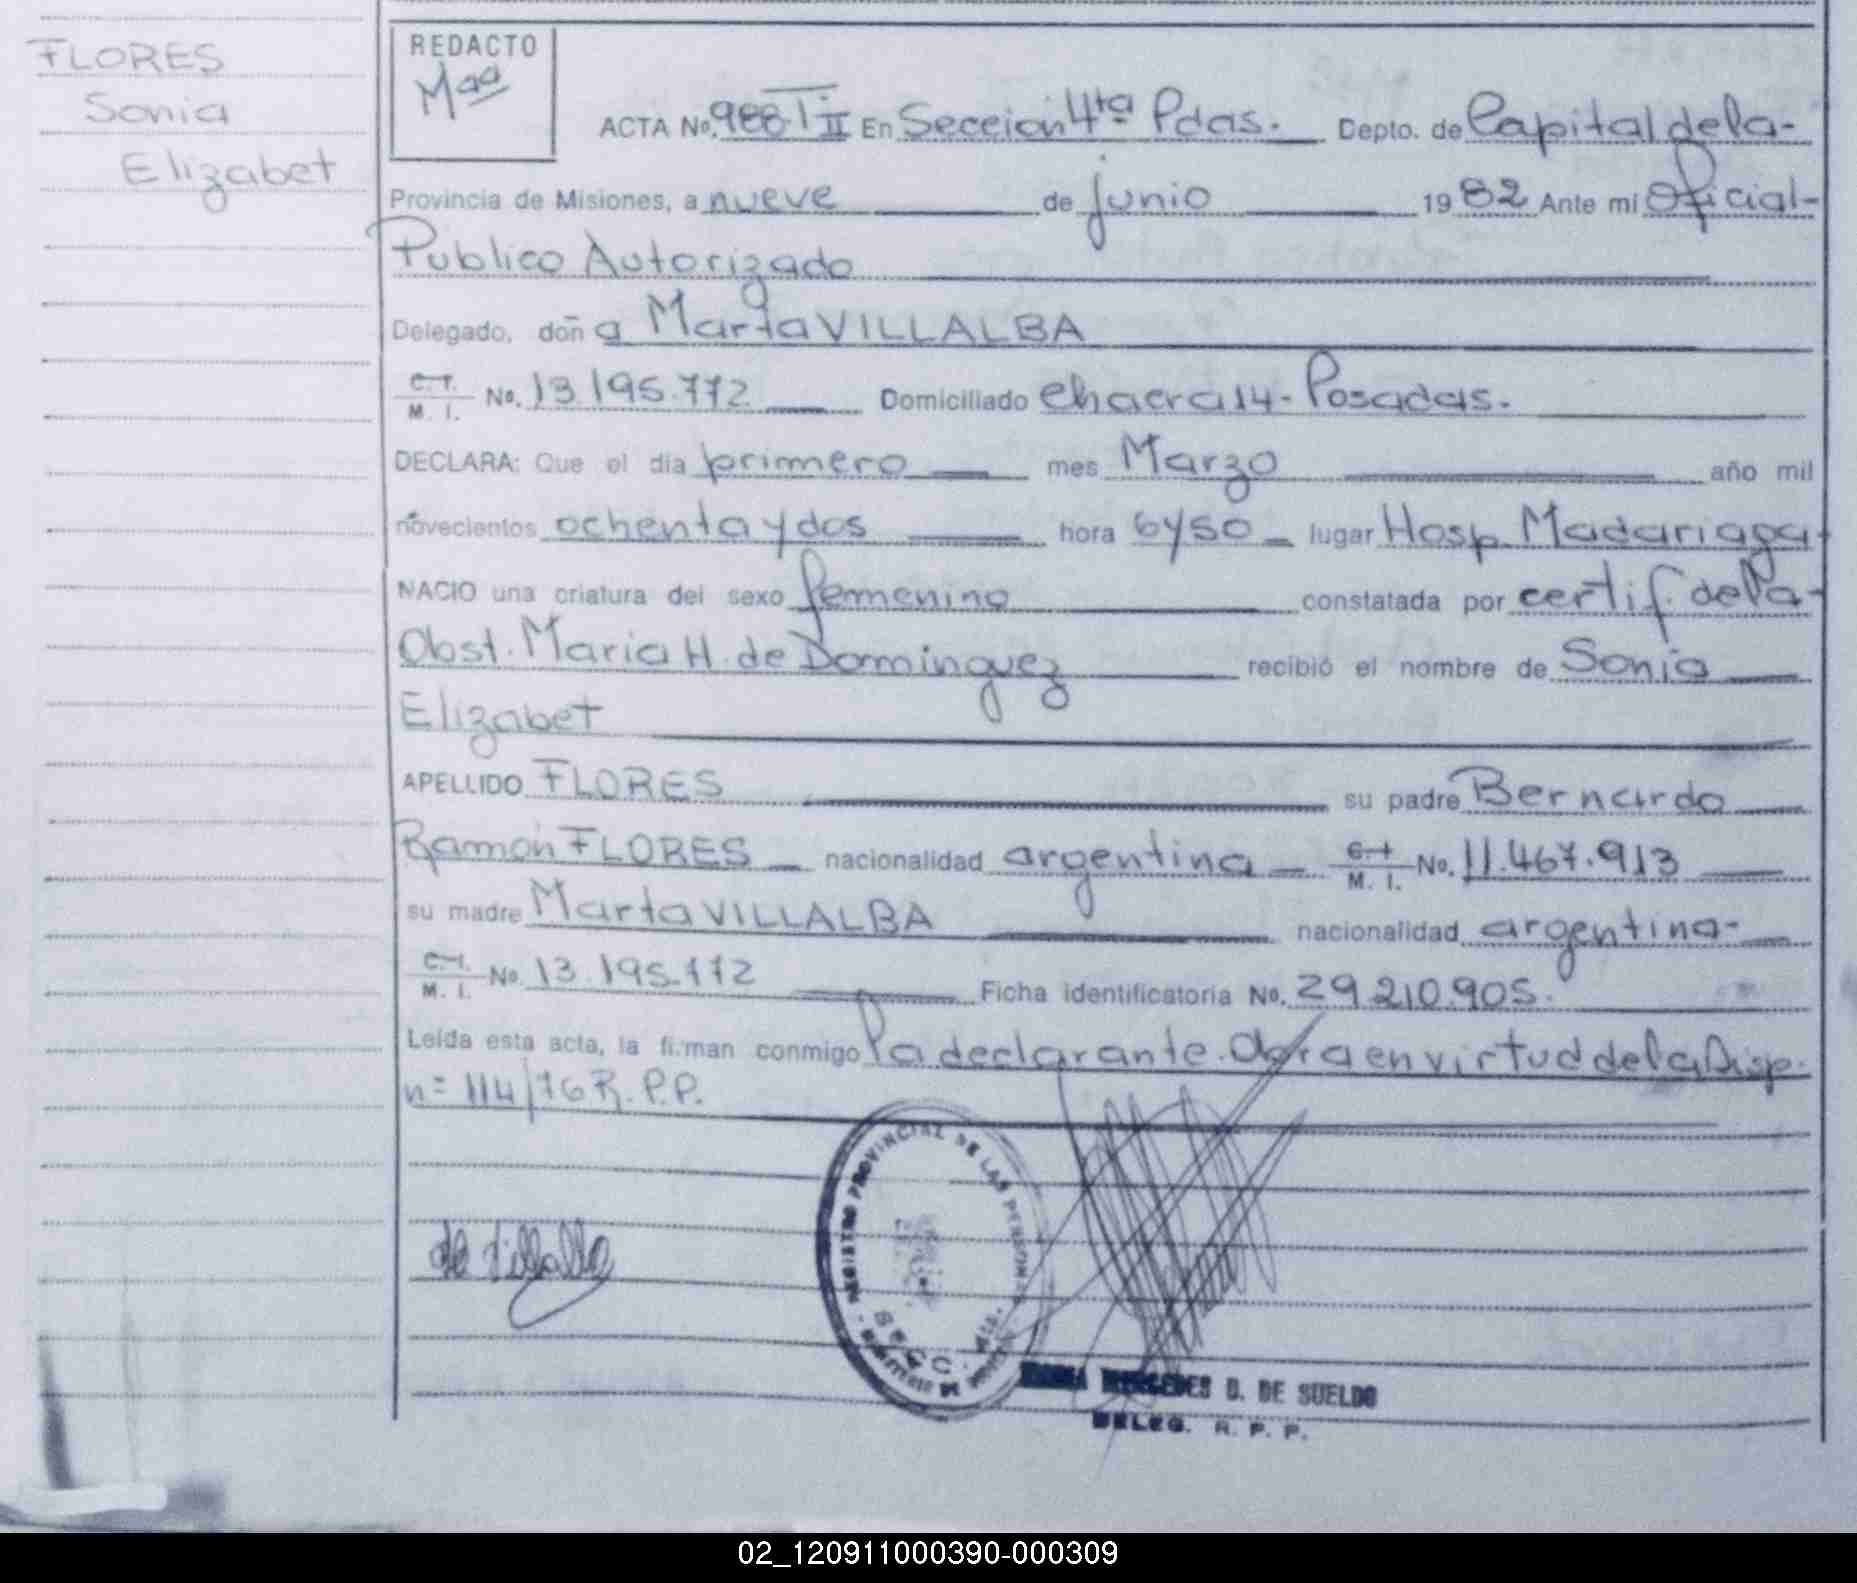 FLORES
Sonia
Elizabet
REDACTO
ACTA No. 988 T II En Seccion 4ta Pdas. Depto. de Capital de la-
Provincia de Misiones, a nueve de junio 1982 Ante mi Oficial-
Publico Autorizado
Delegado, doña Marta VILLALBA
C.I. M. I. No. 13.195.772 Domiciliado Chacra 14- Posadas.
DECLARA: Que el día primero mes Marzo año mil
novecientos ochenta y dos hora 6 y 50 lugar Hosp. Madariaga-
NACIO una criatura del sexo femenino constatada por certif. de la-
Obst. Maria H. de Dominguez recibió el nombre de Sonia
Elizabet
APELLIDO FLORES su padre Bernardo
Ramón FLORES nacionalidad argentina C.I. M. I. No. 11.467.913
su madre Marta VILLALBA nacionalidad argentina-
C.I. M. I. No. 13.195.772 Ficha identificatoria No. 29.210.905.
Leída esta acta, la firman conmigo la declarante. Obra en virtud de la Disp.
n= 114/76 R.P.P.
REGISTRO PROVINCIAL DE LAS PERSONAS
SECC. 4ta.
de Villalba
MERCEDES D. DE SUELDO
DELEG. R. P. P.
02_120911000390-000309